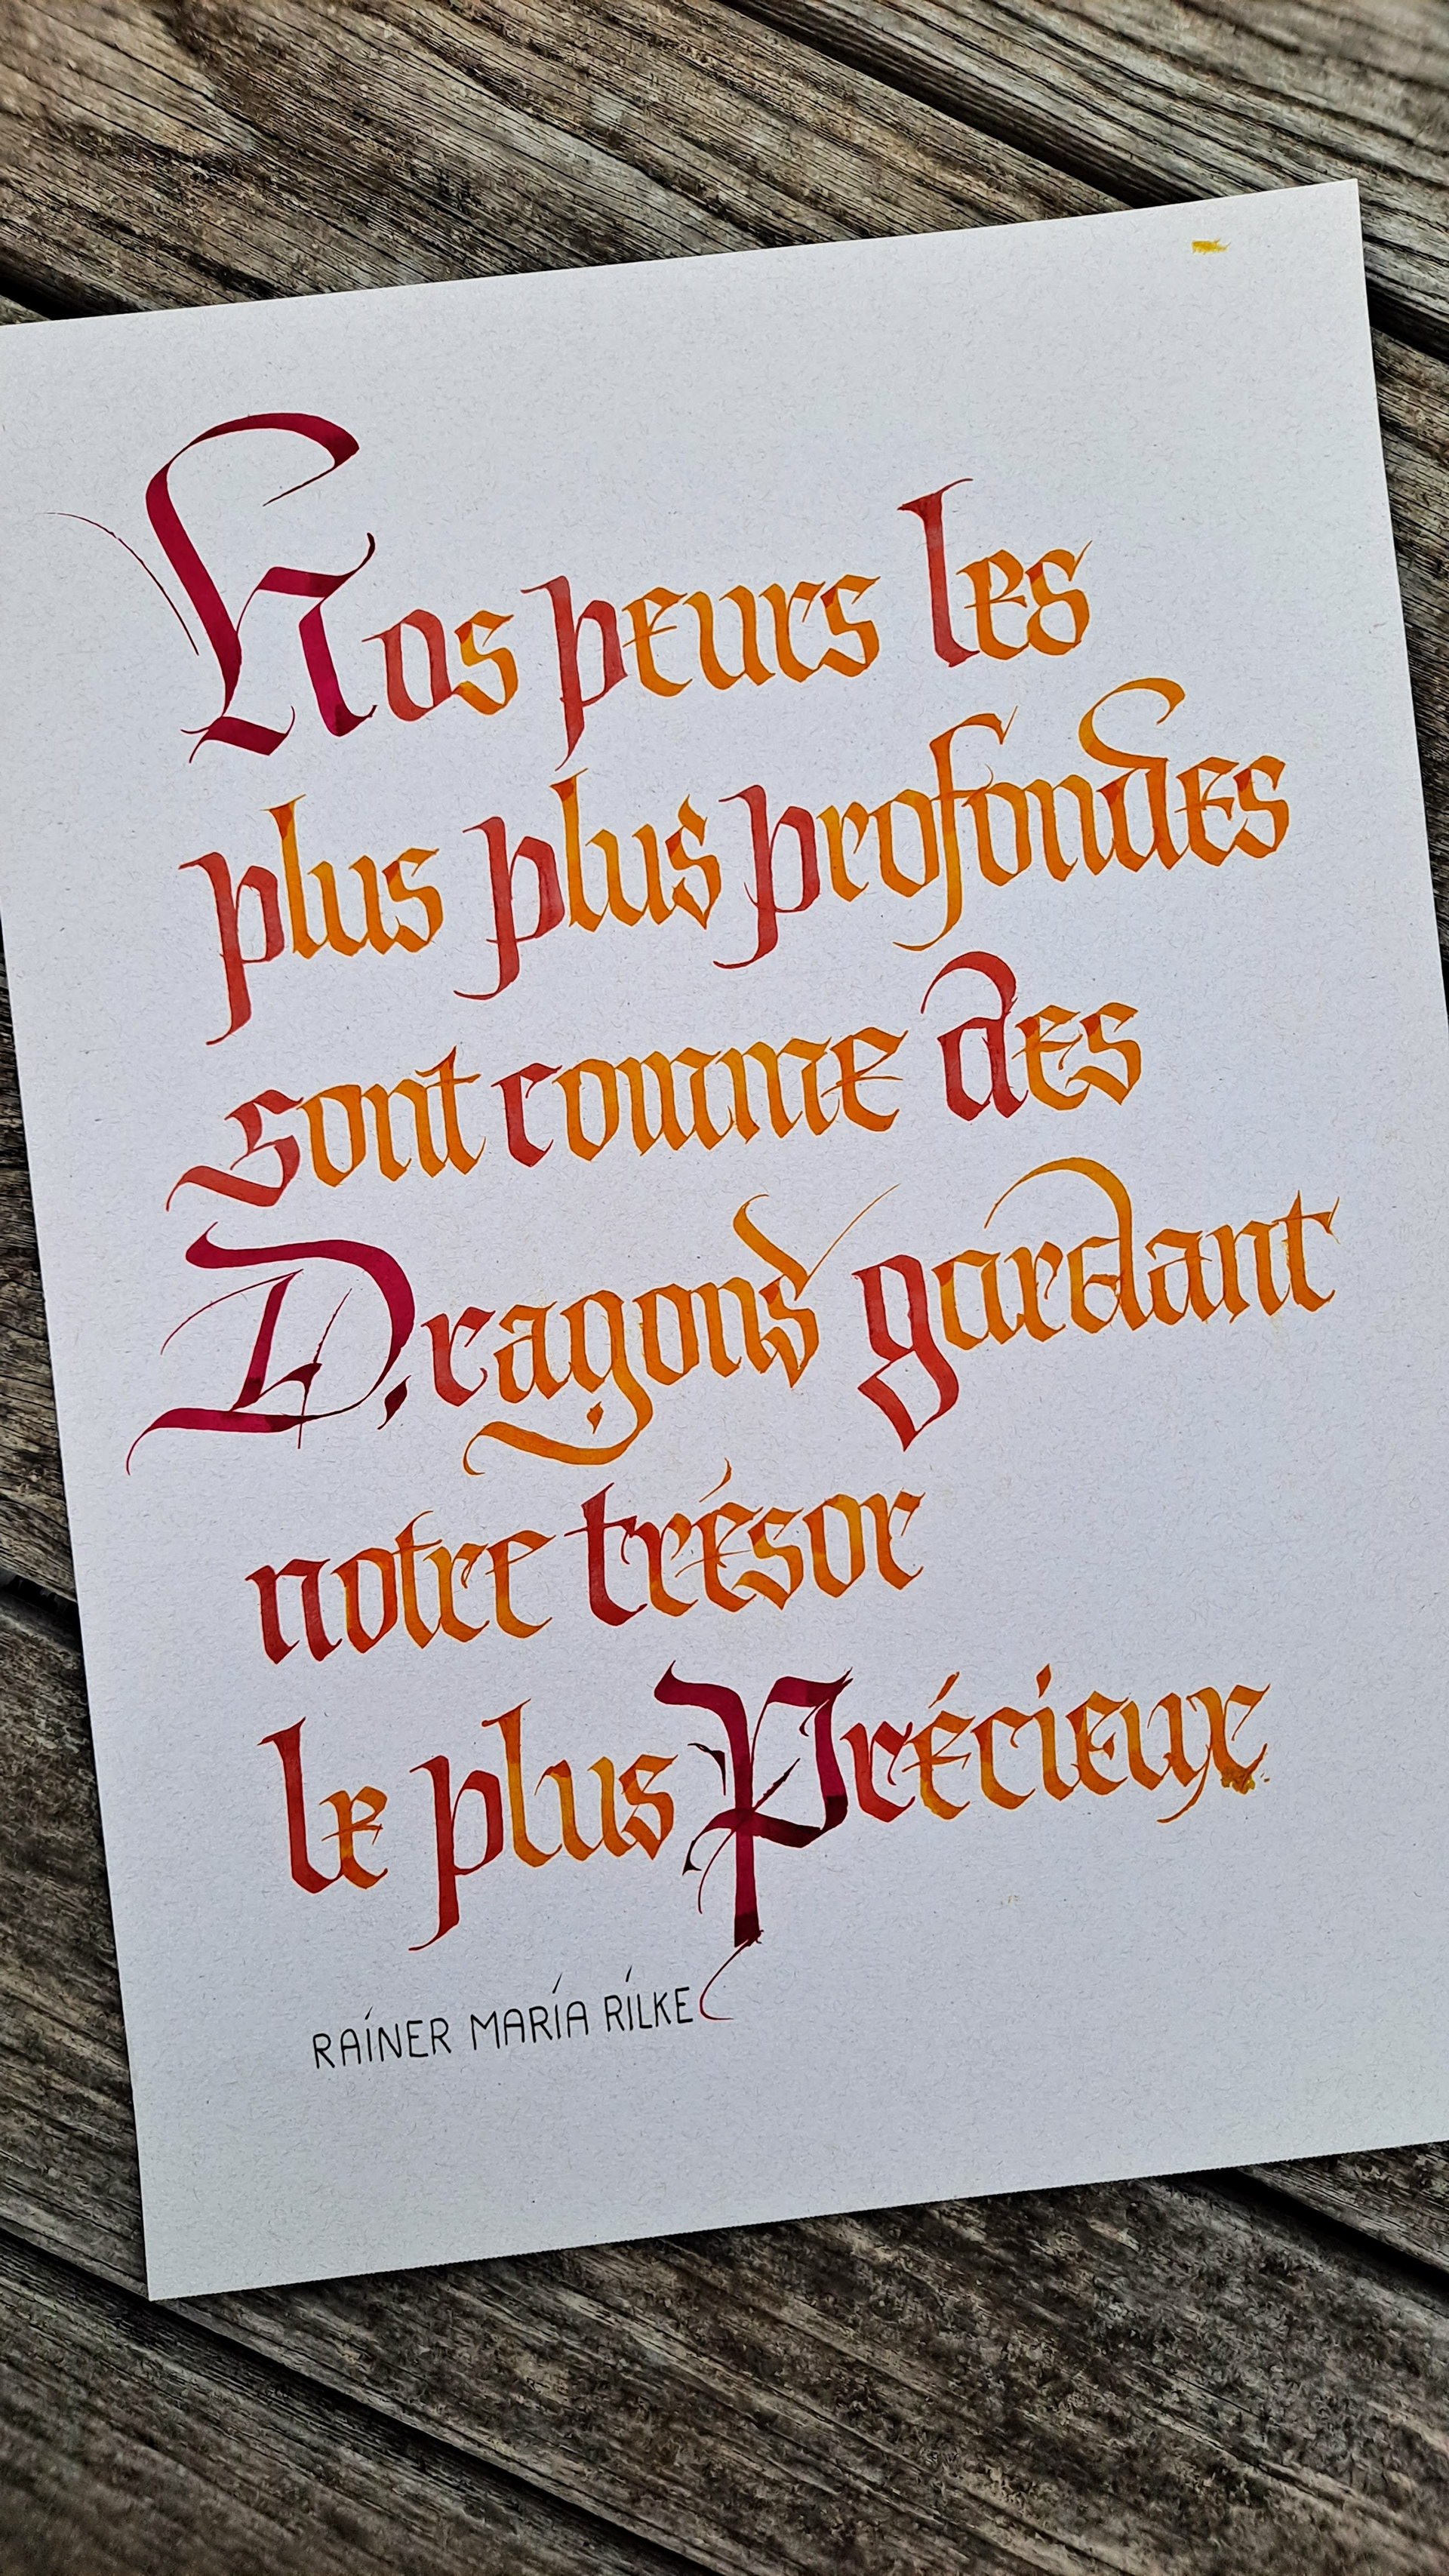 Nos peurs les
plus plus profondes
sont comme des
Dragons gardant
notre trésor
le plus Précieux
RAINER MARIA RILKE